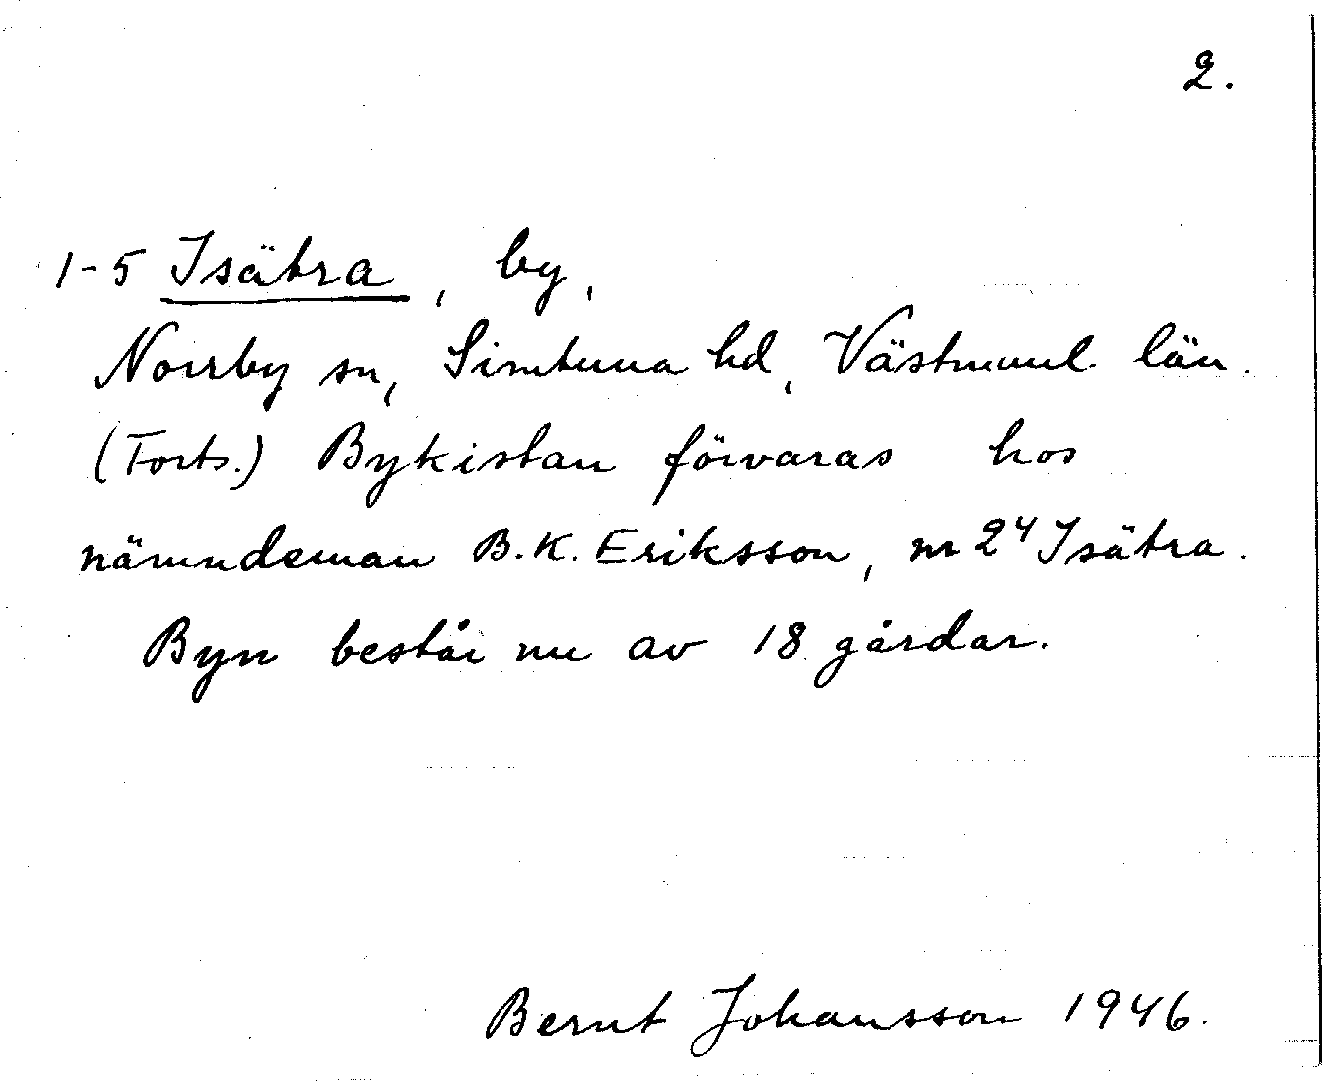 2.
1-5 Isätra, by,
Norrby sn, Simtuna hd, Västmanl. län.
(Forts.) Bykistan förvaras hos
nämndeman B.K. Eriksson, nr 2⁴ Isätra.
Byn består nu av 18 gårdar.
Bernt Johansson 1946.